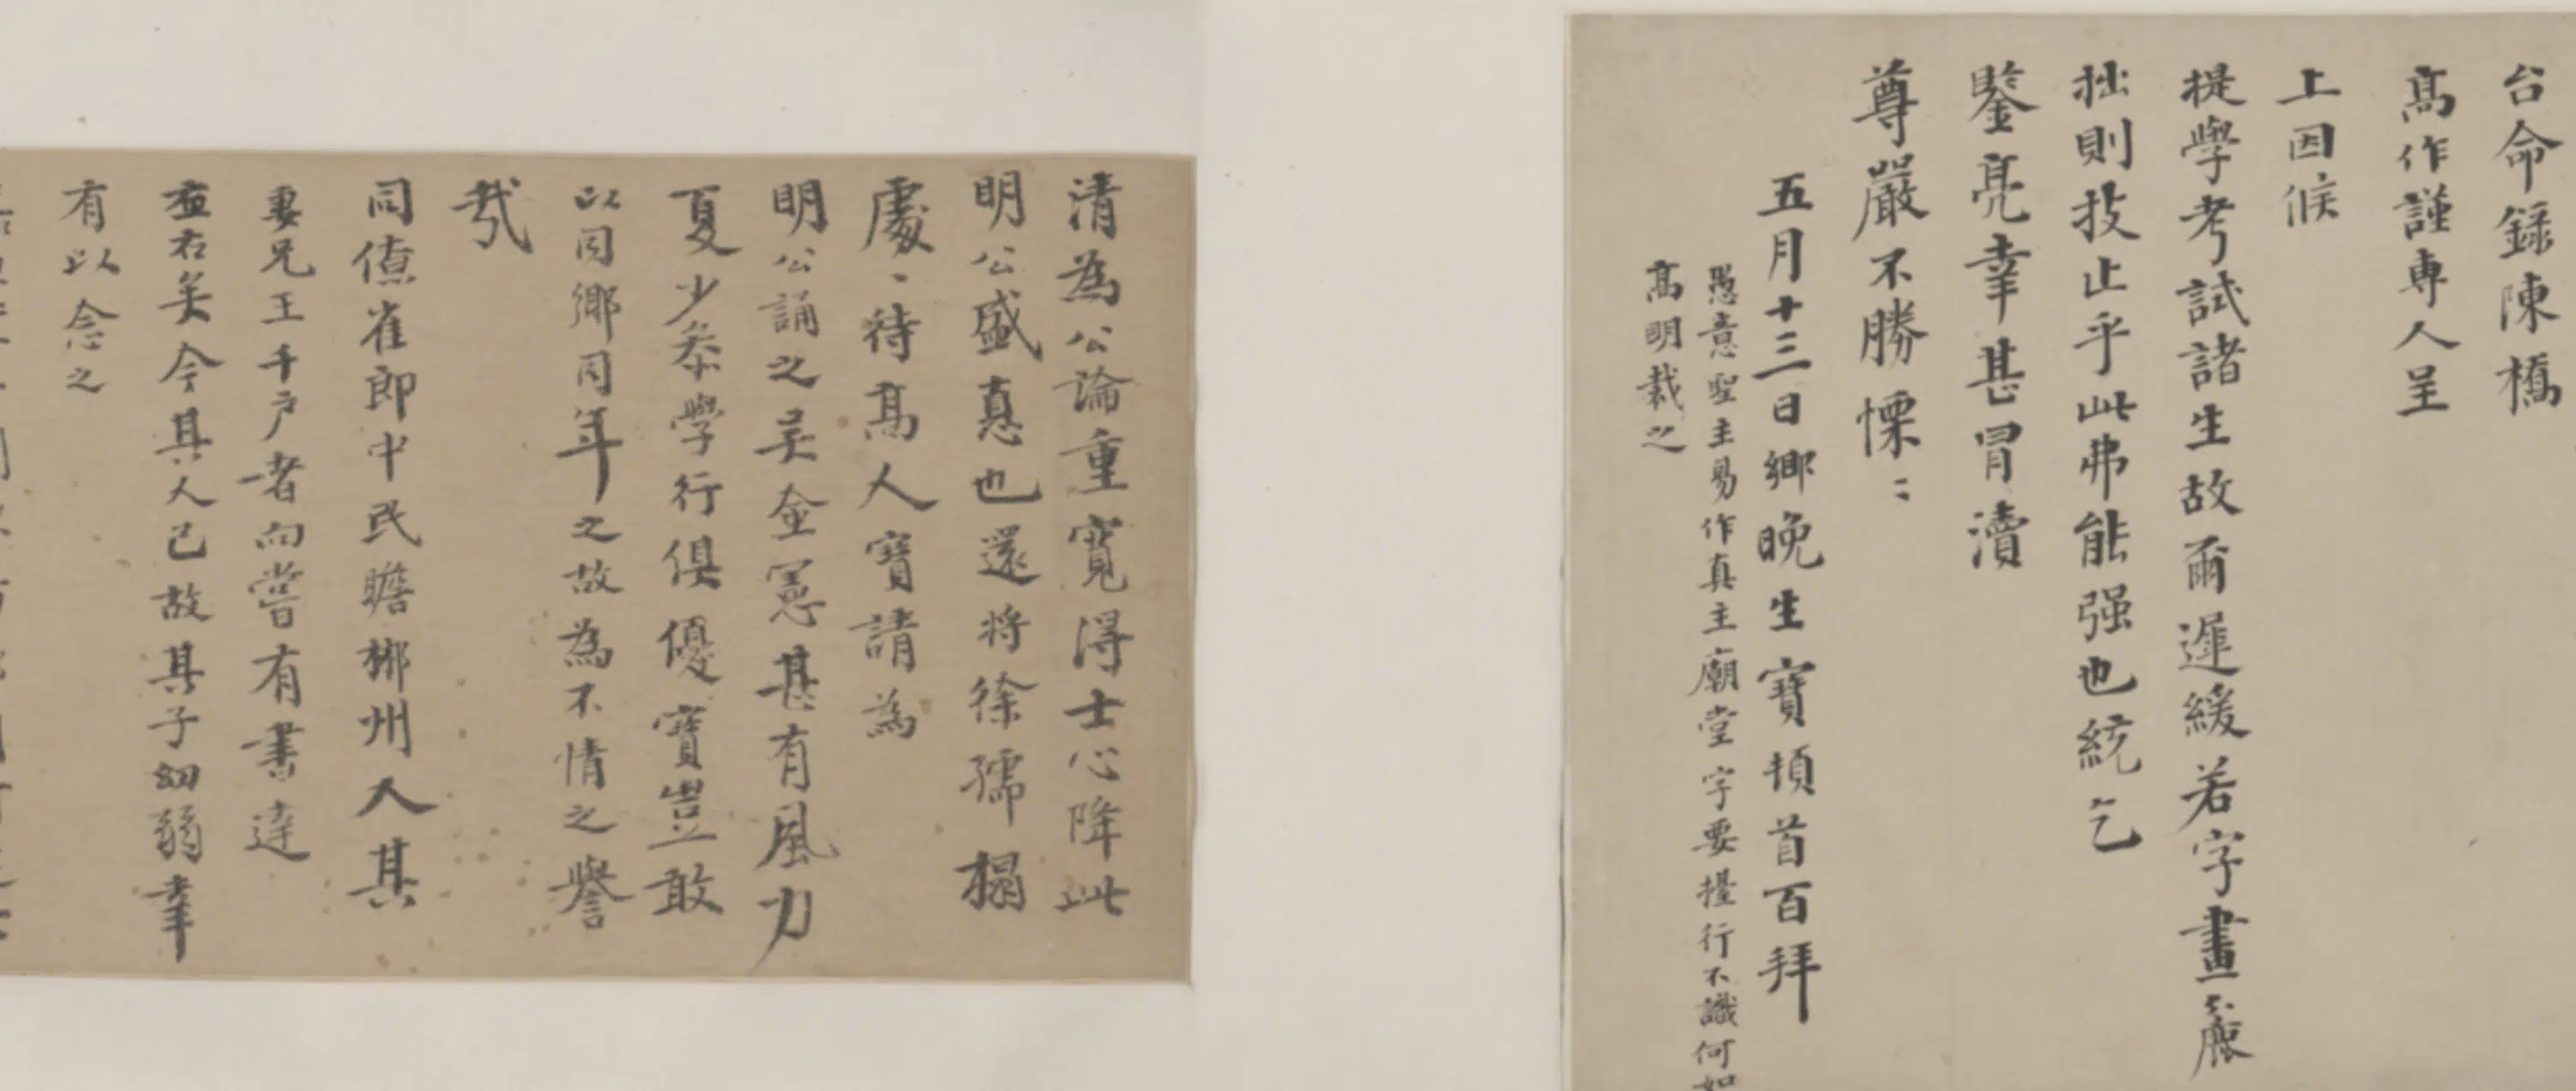 台命録陳橋
高作謹專人呈
上因候
提學考試諸生故爾遲緩若字畫麄
拙則技止乎此弗能强也統乞
鑒亮幸甚冒瀆
尊嚴不勝慄〻
五月十三日鄉晚生寶頓首百拜
愚意聖主易作真主廟堂字要擡行不識何如
高明裁之
清為公論重寬得士心降此
明公盛惪也還將徐孺榻
處〻待高人寶請為
明公誦之吴僉憲甚有風力
夏少叅學行俱優寶豈敢
以同鄉同年之故為不情之譽
㢤
同僚崔郎中民瞻郴州人其
妻兄王千户者向嘗有書達
左右矣今其人已故其子幼弱幸
有以念之